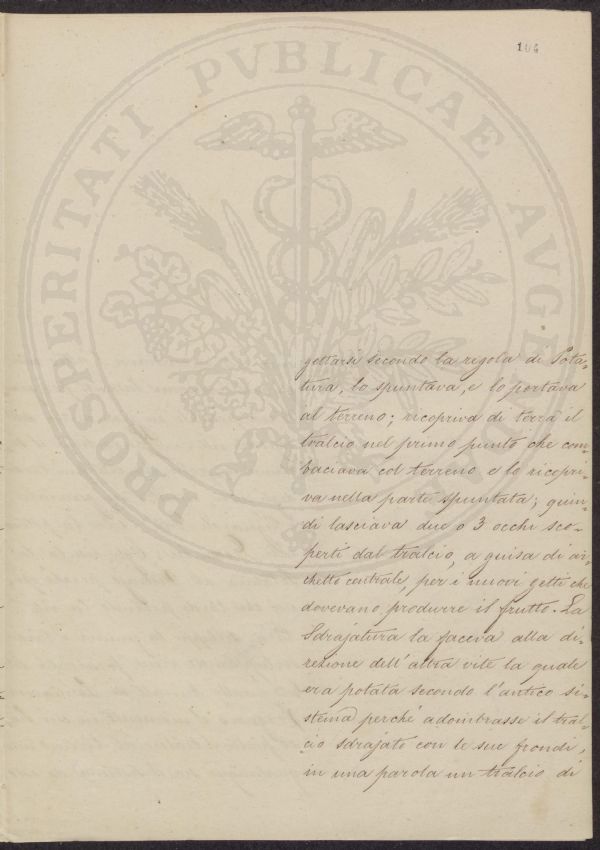 104
PROSPERITATI PVBLICAE AVGE
gettarsi secondo la regola di Pota-
tura, lo spuntava, e lo portava
al terreno; ricopriva di terra il
tralcio nel primo punto che com-
baciava col terreno e lo ricopri-
va nella parte spuntata; quin-
di lasciava due o 3 occhi sco-
perti dal tralcio, a guisa di ar-
chetto centrale, per i nuovi getti che
dovevano produrre il frutto. La
Sdrajatura la faceva alla di-
rezione dell'altra vite la quale
era potata secondo l'antico si-
stema perché adombrasse il tral-
cio sdrajato con le sue frondi,
in una parola un tralcio di